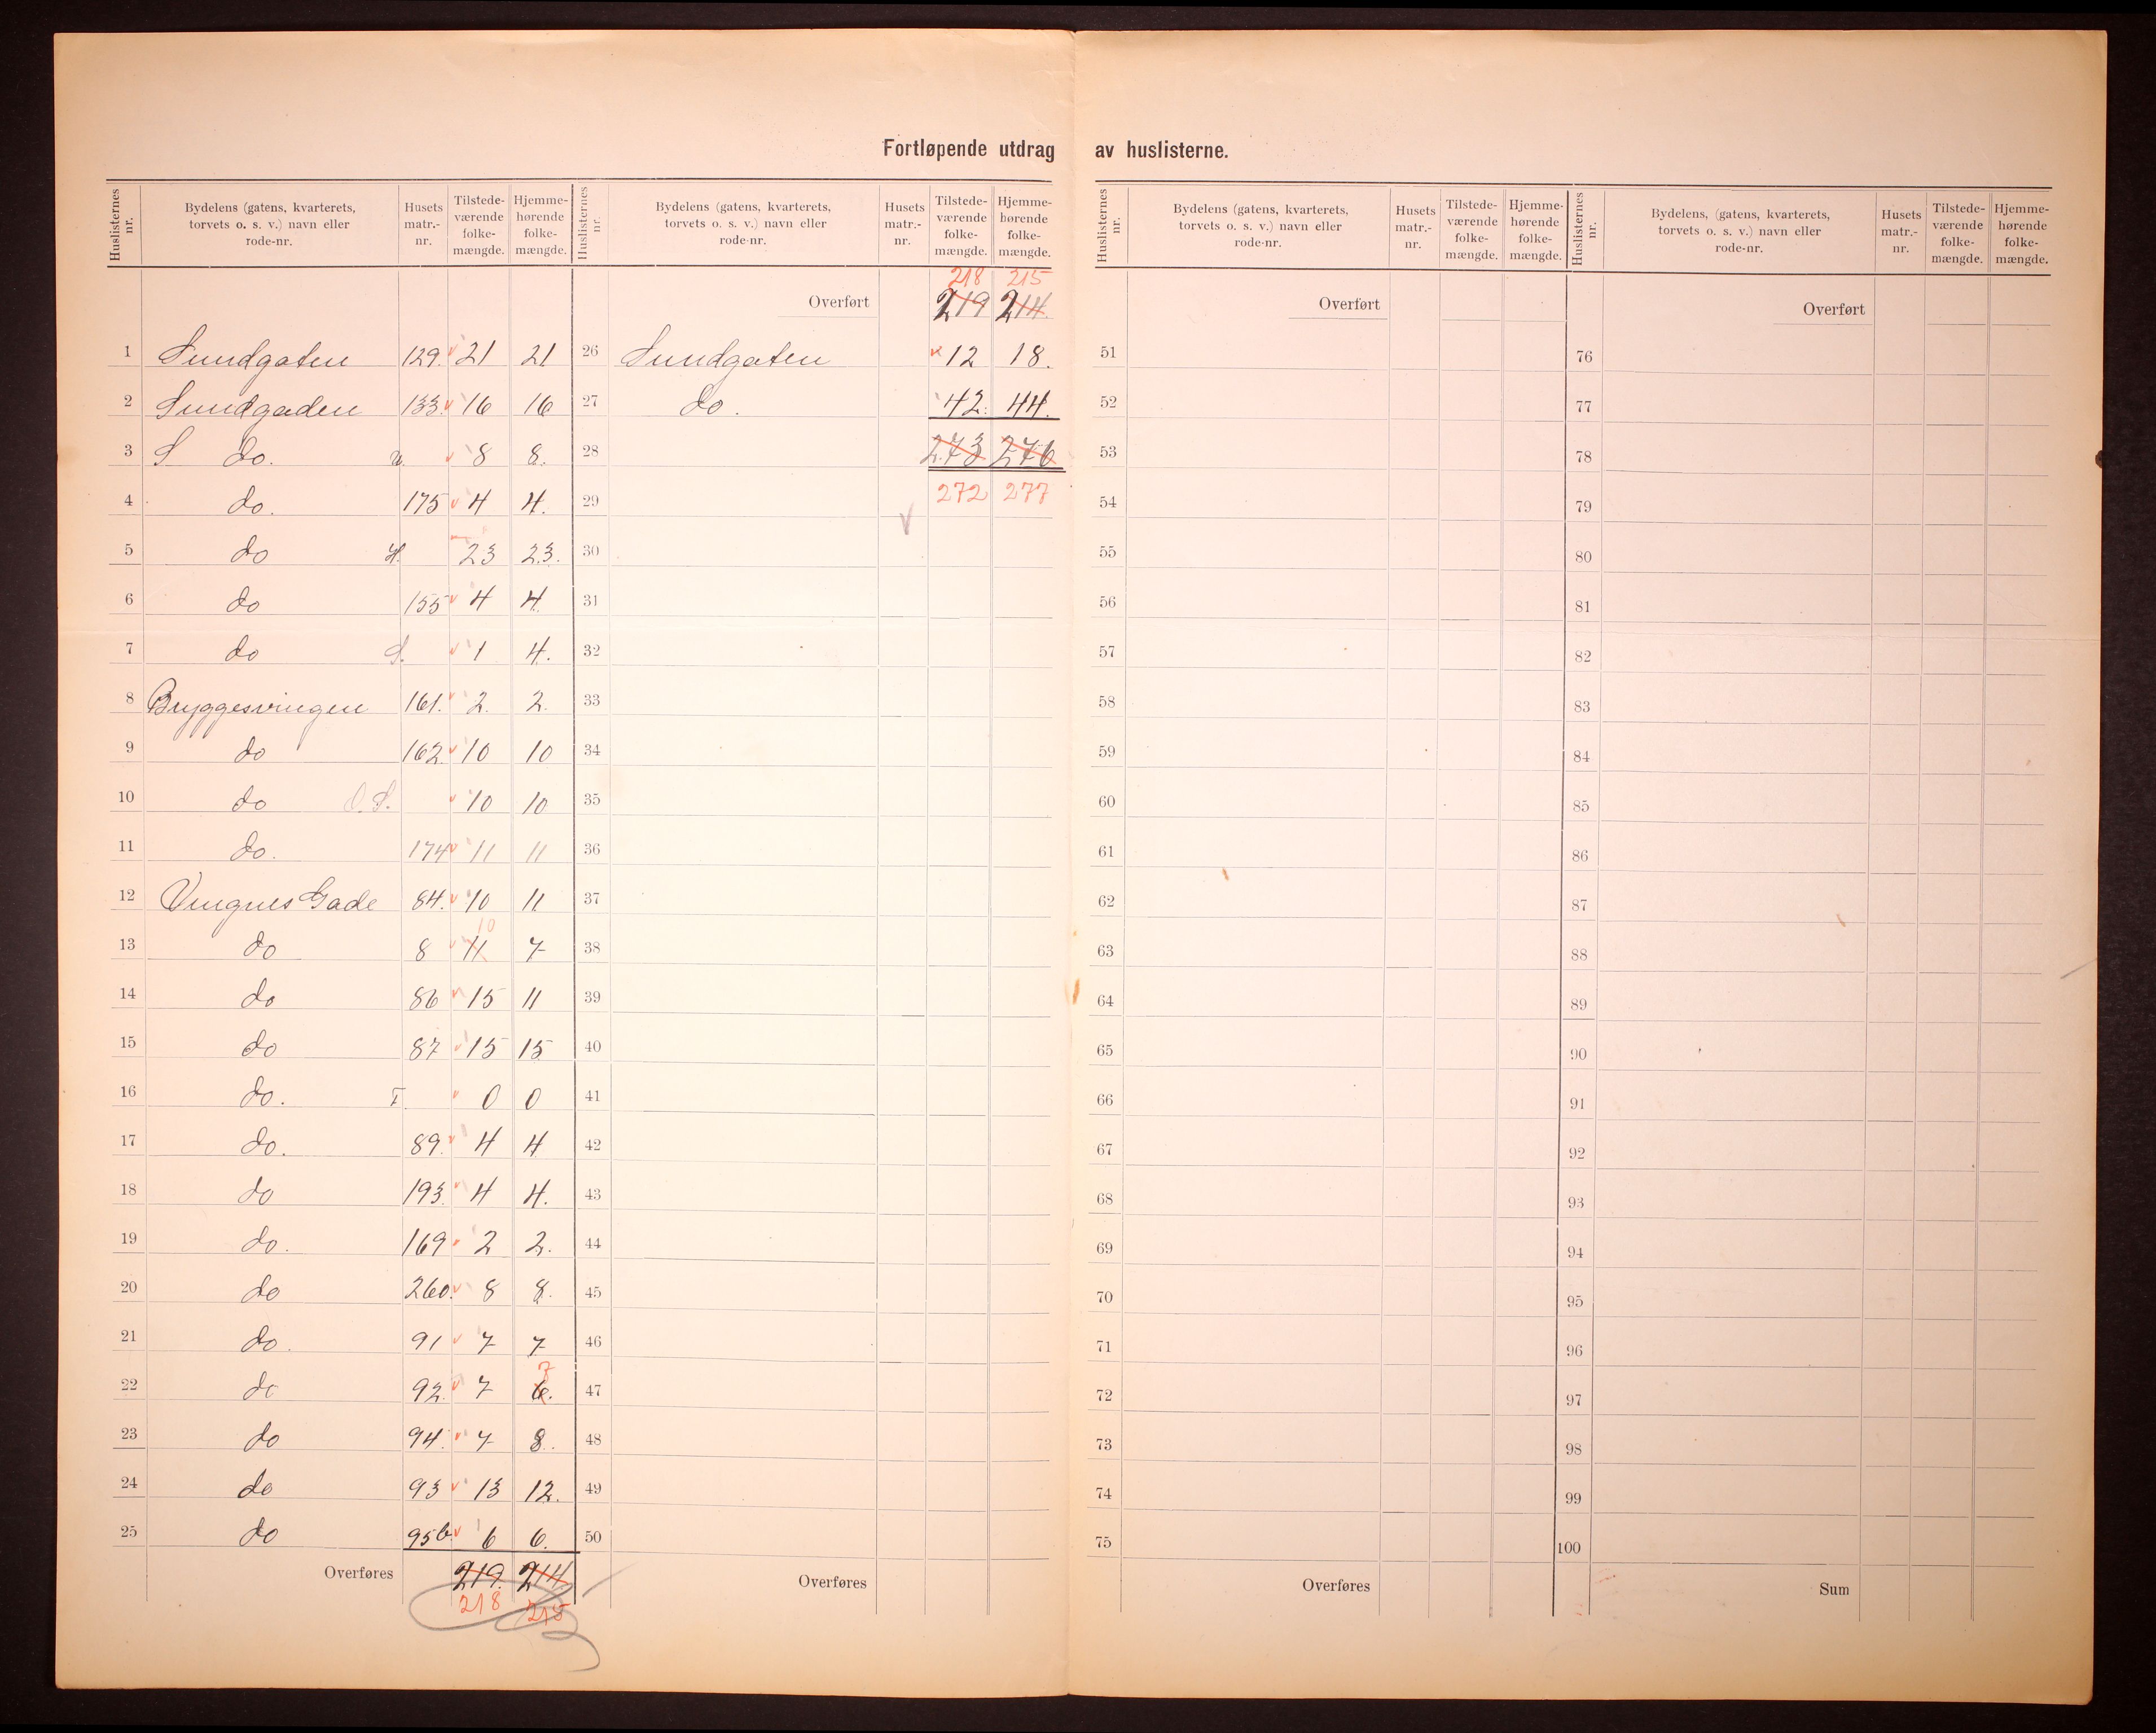 Fortløpende utdrag av huslisterne.
Huslisternes nr. | Bydelens (gatens, kvarterets, torvets o. s. v.) navn eller rode-nr. | Husets matr.-nr. | Tilstede-værende folke-mængde. | Hjemme-hørende folke-mængde.
1 Sundgaten 129. 21 21
2 Sundgaden 133. 16 16
3 S do. 8 8.
4 do. 175 4 4.
5 do H. 23 23.
6 do 155 4 4.
7 do S. 1 4.
8 Bryggesvingen 161. 2. 2.
9 do 162. 10 10
10 do O.S. 10 10
11 do. 174 11 11
12 Vingnes Gade 84. 10 11
13 do 8 11 10 7
14 do 86 15 11
15 do 87 15 15
16 do. F. 0 0
17 do. 89. 4 4
18 do 193. 4 4.
19 do. 169 2 2.
20 do 260. 8 8.
21 do. 91 7 7
22 do 92. 7 6. 7
23 do 94. 7 8.
24 do 93 13 12.
25 do 95b. 6 6.
Overføres 219. 214.
218 215
Huslisternes nr. | Bydelens (gatens, kvarterets, torvets o. s. v.) navn eller rode-nr. | Husets matr.-nr. | Tilstede-værende folke-mængde. | Hjemme-hørende folke-mængde.
218 215
Overført 219 214.
26 Sundgaten 12 18.
27 do. 42. 44.
28 273 276
29 272 277
30
31
32
33
34
35
36
37
38
39
40
41
42
43
44
45
46
47
48
49
50
Overføres
Huslisternes nr. | Bydelens (gatens, kvarterets, torvets o. s. v.) navn eller rode-nr. | Husets matr.-nr. | Tilstede-værende folke-mængde. | Hjemme-hørende folke-mængde.
Overført
51
52
53
54
55
56
57
58
59
60
61
62
63
64
65
66
67
68
69
70
71
72
73
74
75
Overføres
Huslisternes nr. | Bydelens, (gatens, kvarterets, torvets o. s. v.) navn eller rode-nr. | Husets matr.-nr. | Tilstede-værende folke-mængde. | Hjemme-hørende folke-mængde.
Overført
76
77
78
79
80
81
82
83
84
85
86
87
88
89
90
91
92
93
94
95
96
97
98
99
100
Sum